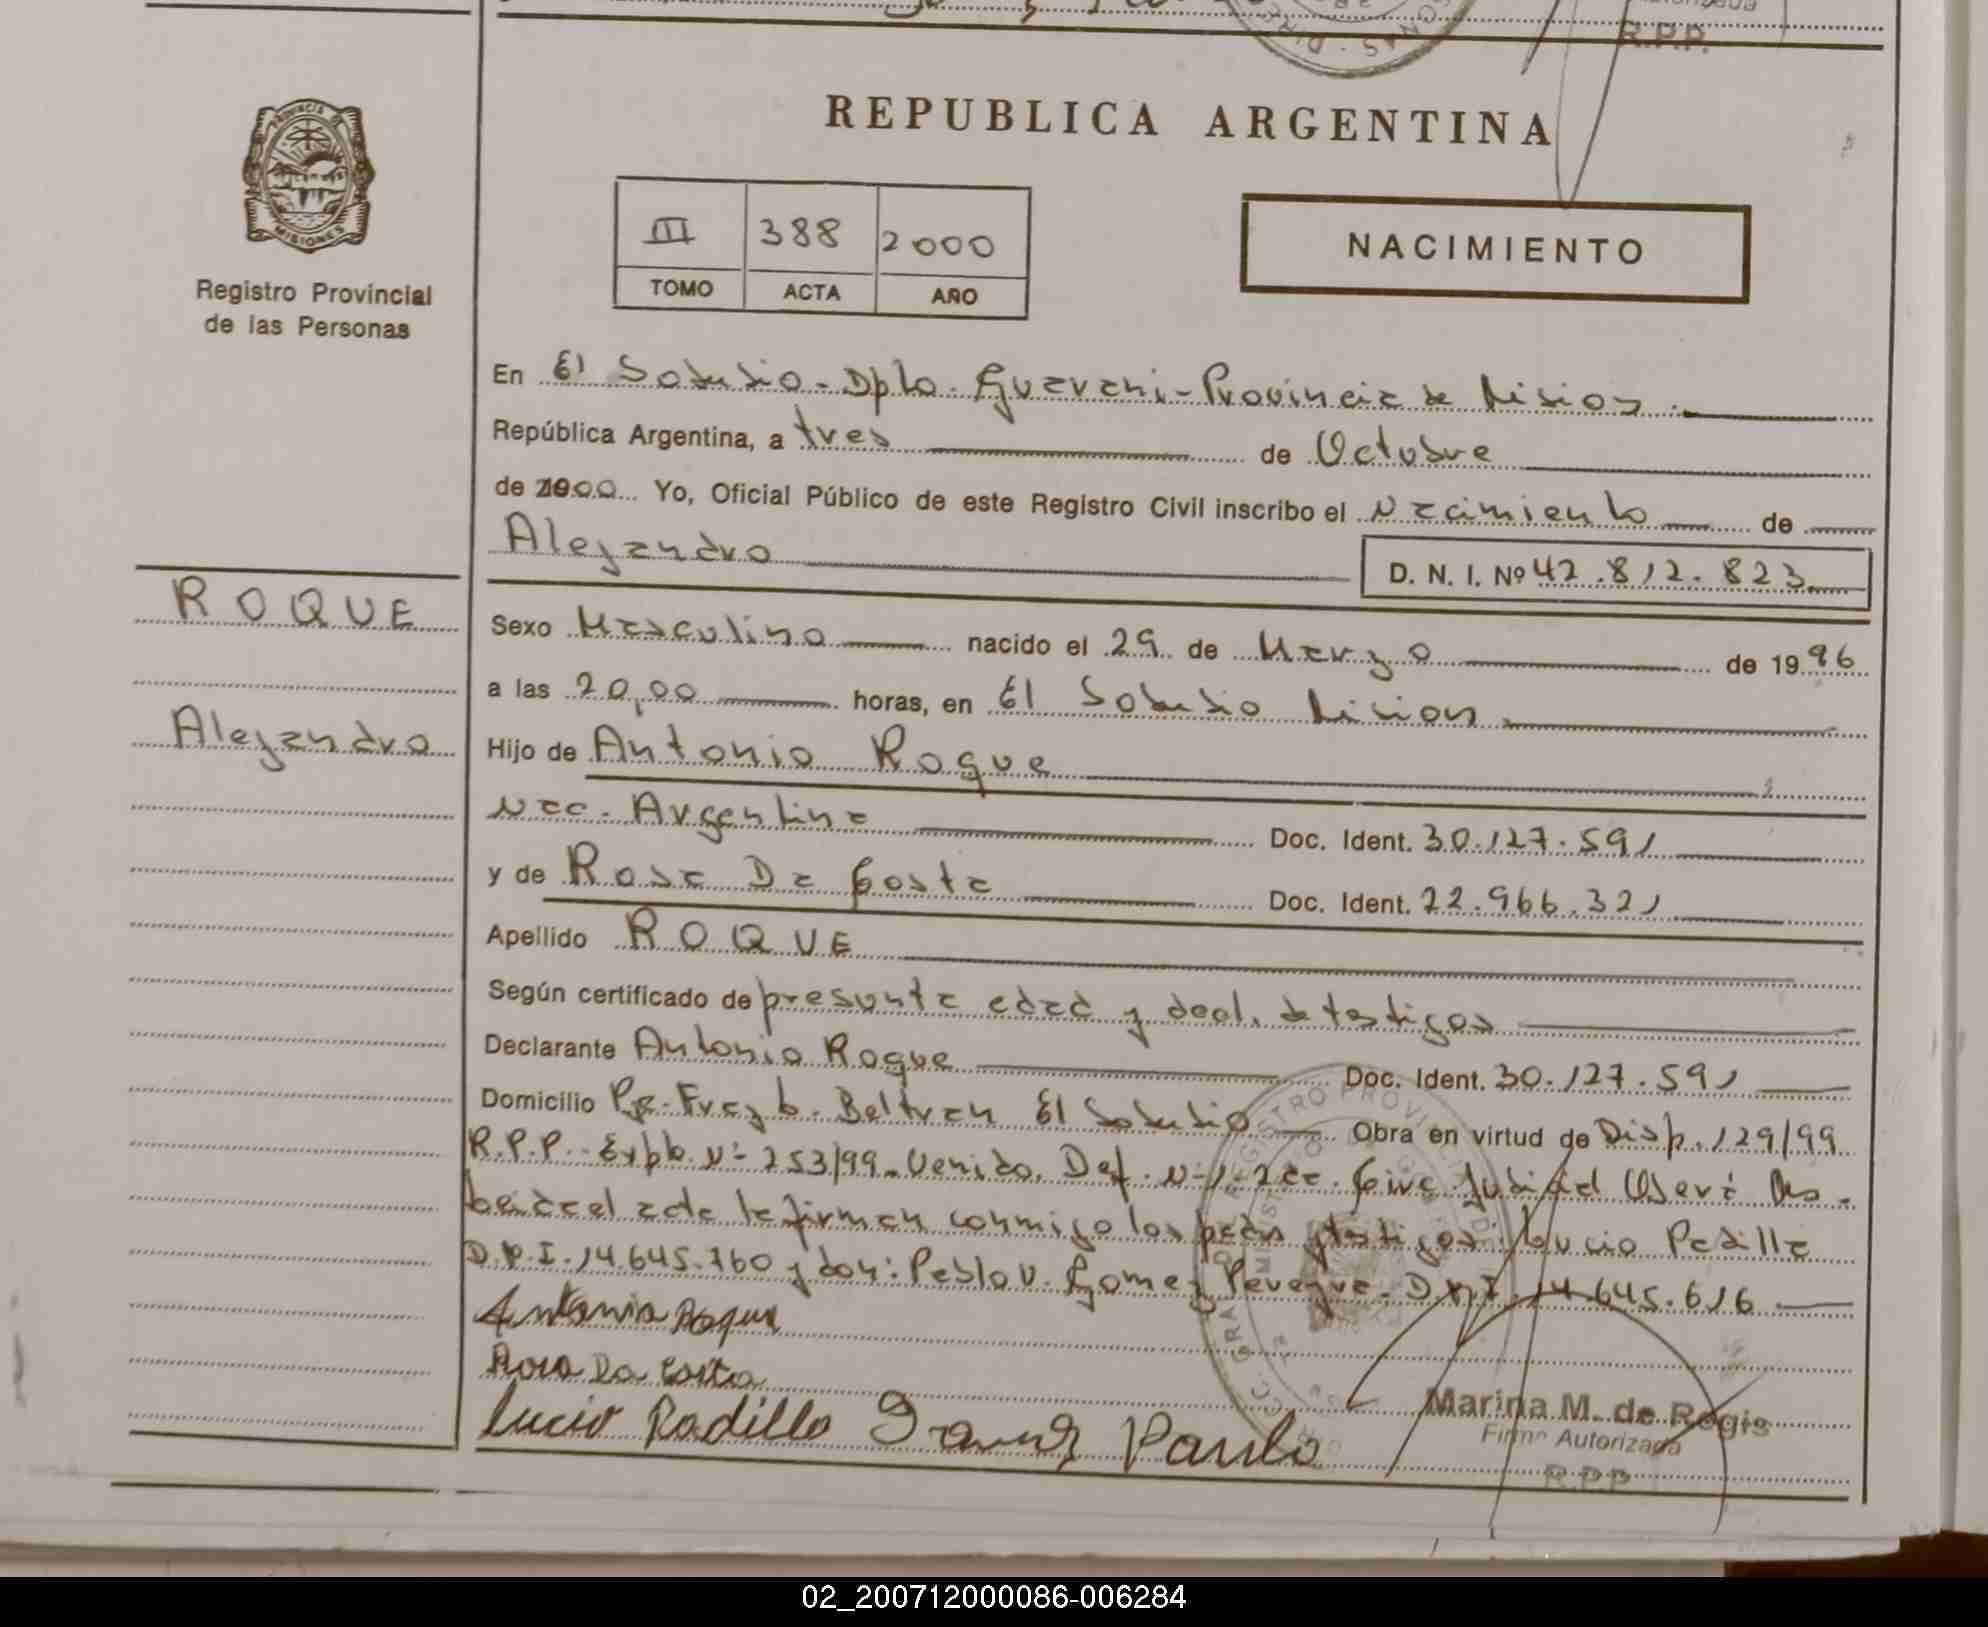 R.P.P.
REPUBLICA ARGENTINA
PROVINCIA DE MISIONES
Registro Provincial
de las Personas
III 388 2000
TOMO ACTA AÑO
NACIMIENTO
En El Soberbio - Dpto. Guarani - Provincia de Misiones
República Argentina, a tres de Octubre
de 2000 Yo, Oficial Público de este Registro Civil inscribo el Nacimiento de
Alejandro D. N. I. Nº 42.812.823
ROQUE
Alejandro
Sexo Masculino nacido el 29 de Marzo de 1996
a las 20,00 horas, en El Soberbio Misiones
Hijo de Antonio Roque
Nac. Argentina Doc. Ident. 30.127.591
y de Rosa Da Costa Doc. Ident. 22.966.321
Apellido ROQUE
Según certificado de presunta edad y decl. de testigos
Declarante Antonio Roque Doc. Ident. 30.127.591
Domicilio Pje. Fray L. Beltran El Soberbio Obra en virtud de Disp. 129/99
R.P.P. Expte. Nº 253/99 - Venido. Def. Nº 1 - 2da. Circ. Judicial Oberá Mnes.
Leida el acta la firman conmigo los padres y testigos: Lucio Padilla
D.N.I. 14.645.760 y don: Pablo V. Gomez Pereyra. D.N.I. 14.645.616
Antonio Roque
Rosa Da Costa
Lucio Padillo Paulo
Marina M. de Regis
Firma Autorizada
R.P.P.
02_200712000086-006284